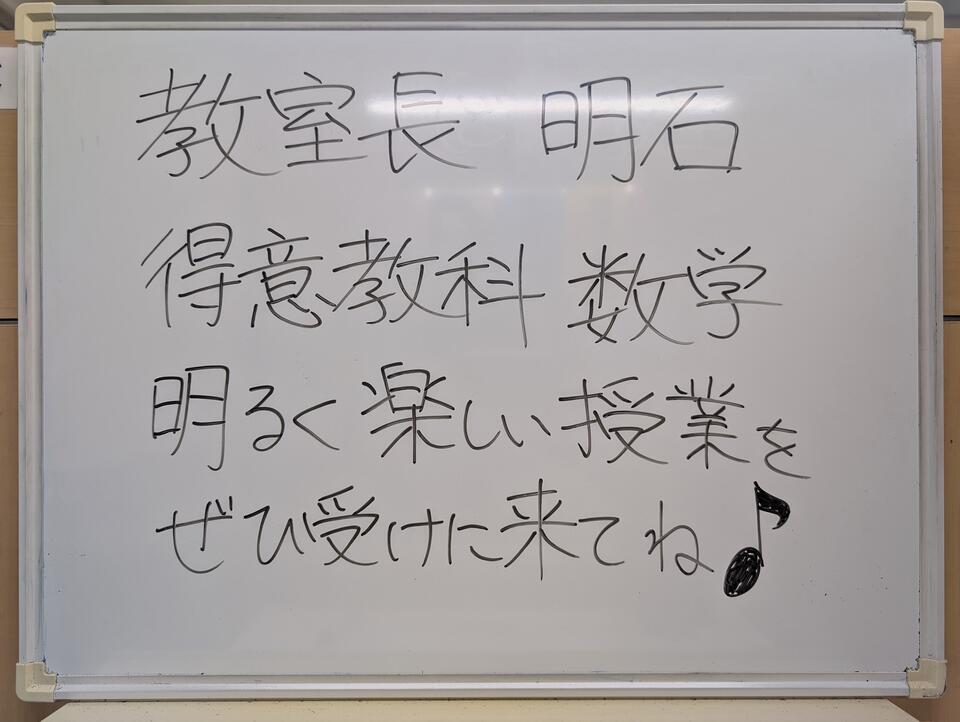 教室長 明石
得意教科 数学
明るく楽しい授業を
ぜひ受けに来てね♪